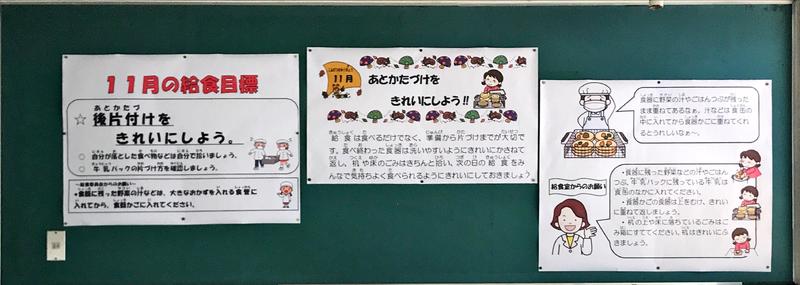 11月の給食目標
☆ 後片付けを
きれいにしよう。
○ 自分が落とした食べ物などは自分で拾いましょう。
○ 牛乳パックの片づけ方を確認しましょう。
～給食委員会からのお願い～
★食器に残った野菜の汁などは、大きなおかずを入れる食管に
入れてから、食器かごに入れてください。
11月
あとかたづけを
きれいにしよう!!
給食は食べるだけでなく、準備から片づけまでが大切で
す。食べ終わった食器は洗いやすいようにきれいにかさねて
返し、机や床のごみはきちんと拾い、次の日の給食をみ
んなで気持ちよく食べられるようにきれいにしておきましょう
食器に野菜の汁やごはんつぶが残った
まま重ねてあるなぁ。汁などは食缶の
中に入れてから食器かごに重ねてくれ
るとうれしいなぁ～。
給食室からのお願い
・食器に残った野菜などの汁やごはん
つぶ、牛乳パックに残っている牛乳は
食缶のなかに入れてください。
・食器かごの食器は上をむけ、きれい
に重ねて返しましょう。
・机の上や床に落ちているごみはご
み箱にすててください。机はきれいにふ
きましょう。